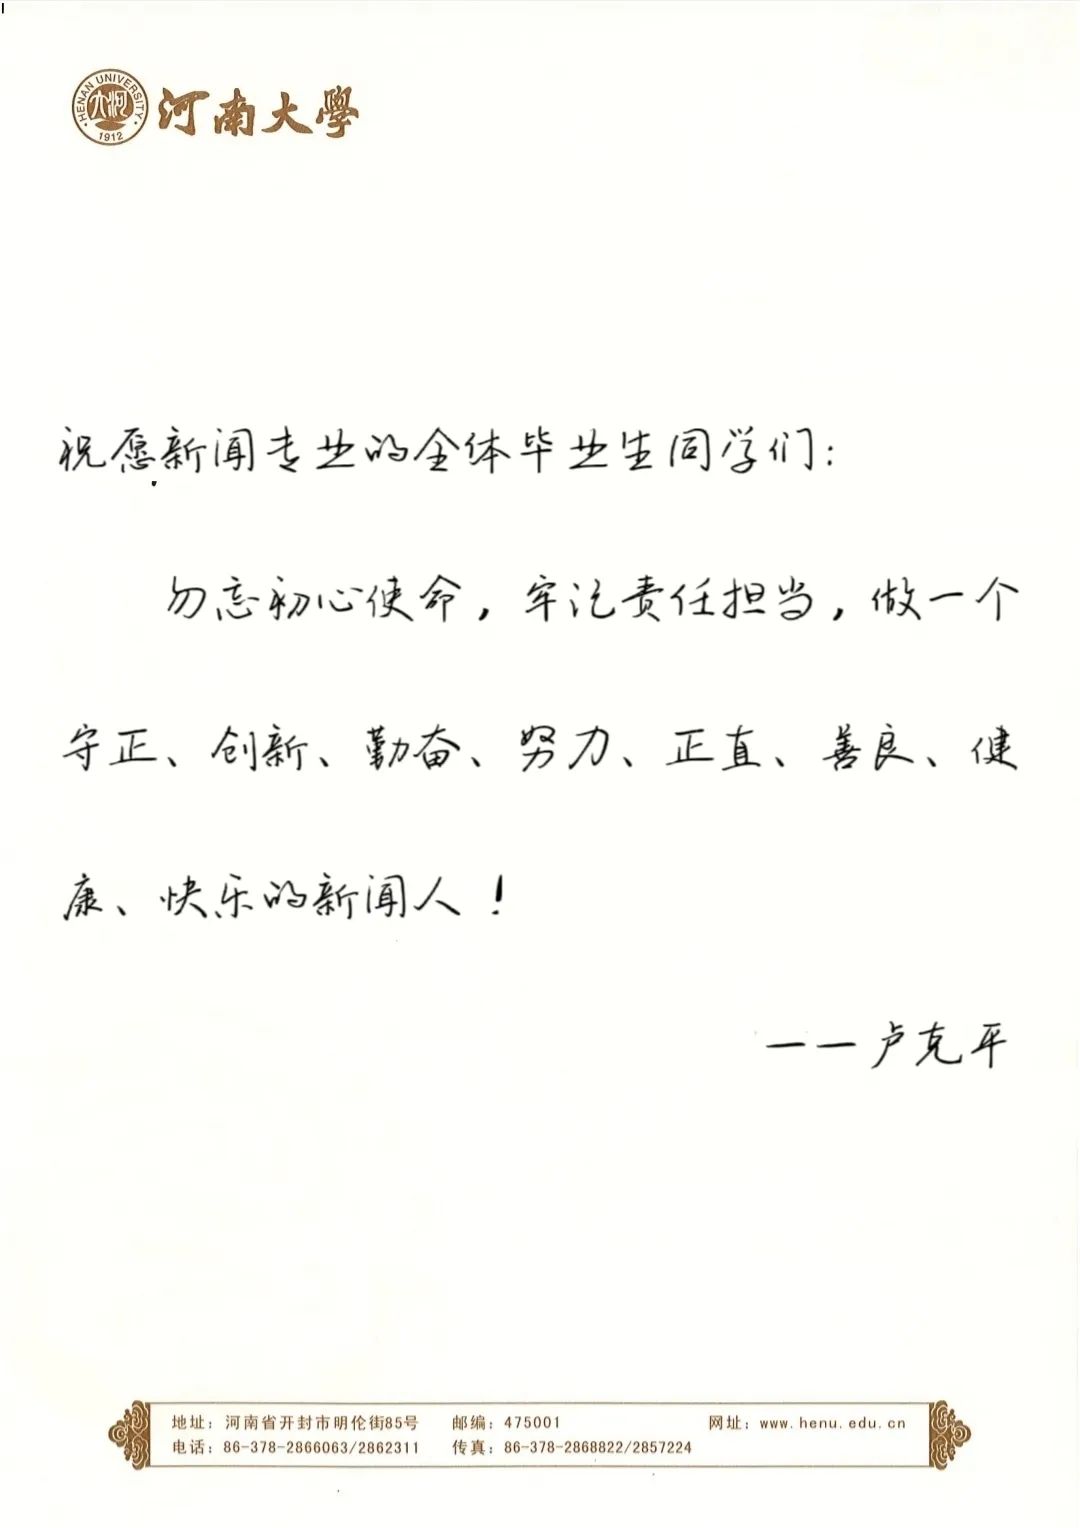 HENAN UNIVERSITY
大河
1912
河南大學
祝愿新闻专业的全体毕业生同学们：
勿忘初心使命，牢记责任担当，做一个
守正、创新、勤奋、努力、正直、善良、健
康、快乐的新闻人！
——卢克平
地址：河南省开封市明伦街85号 邮编：475001 网址：www.henu.edu.cn
电话：86-378-2866063/2862311 传真：86-378-2868822/2857224